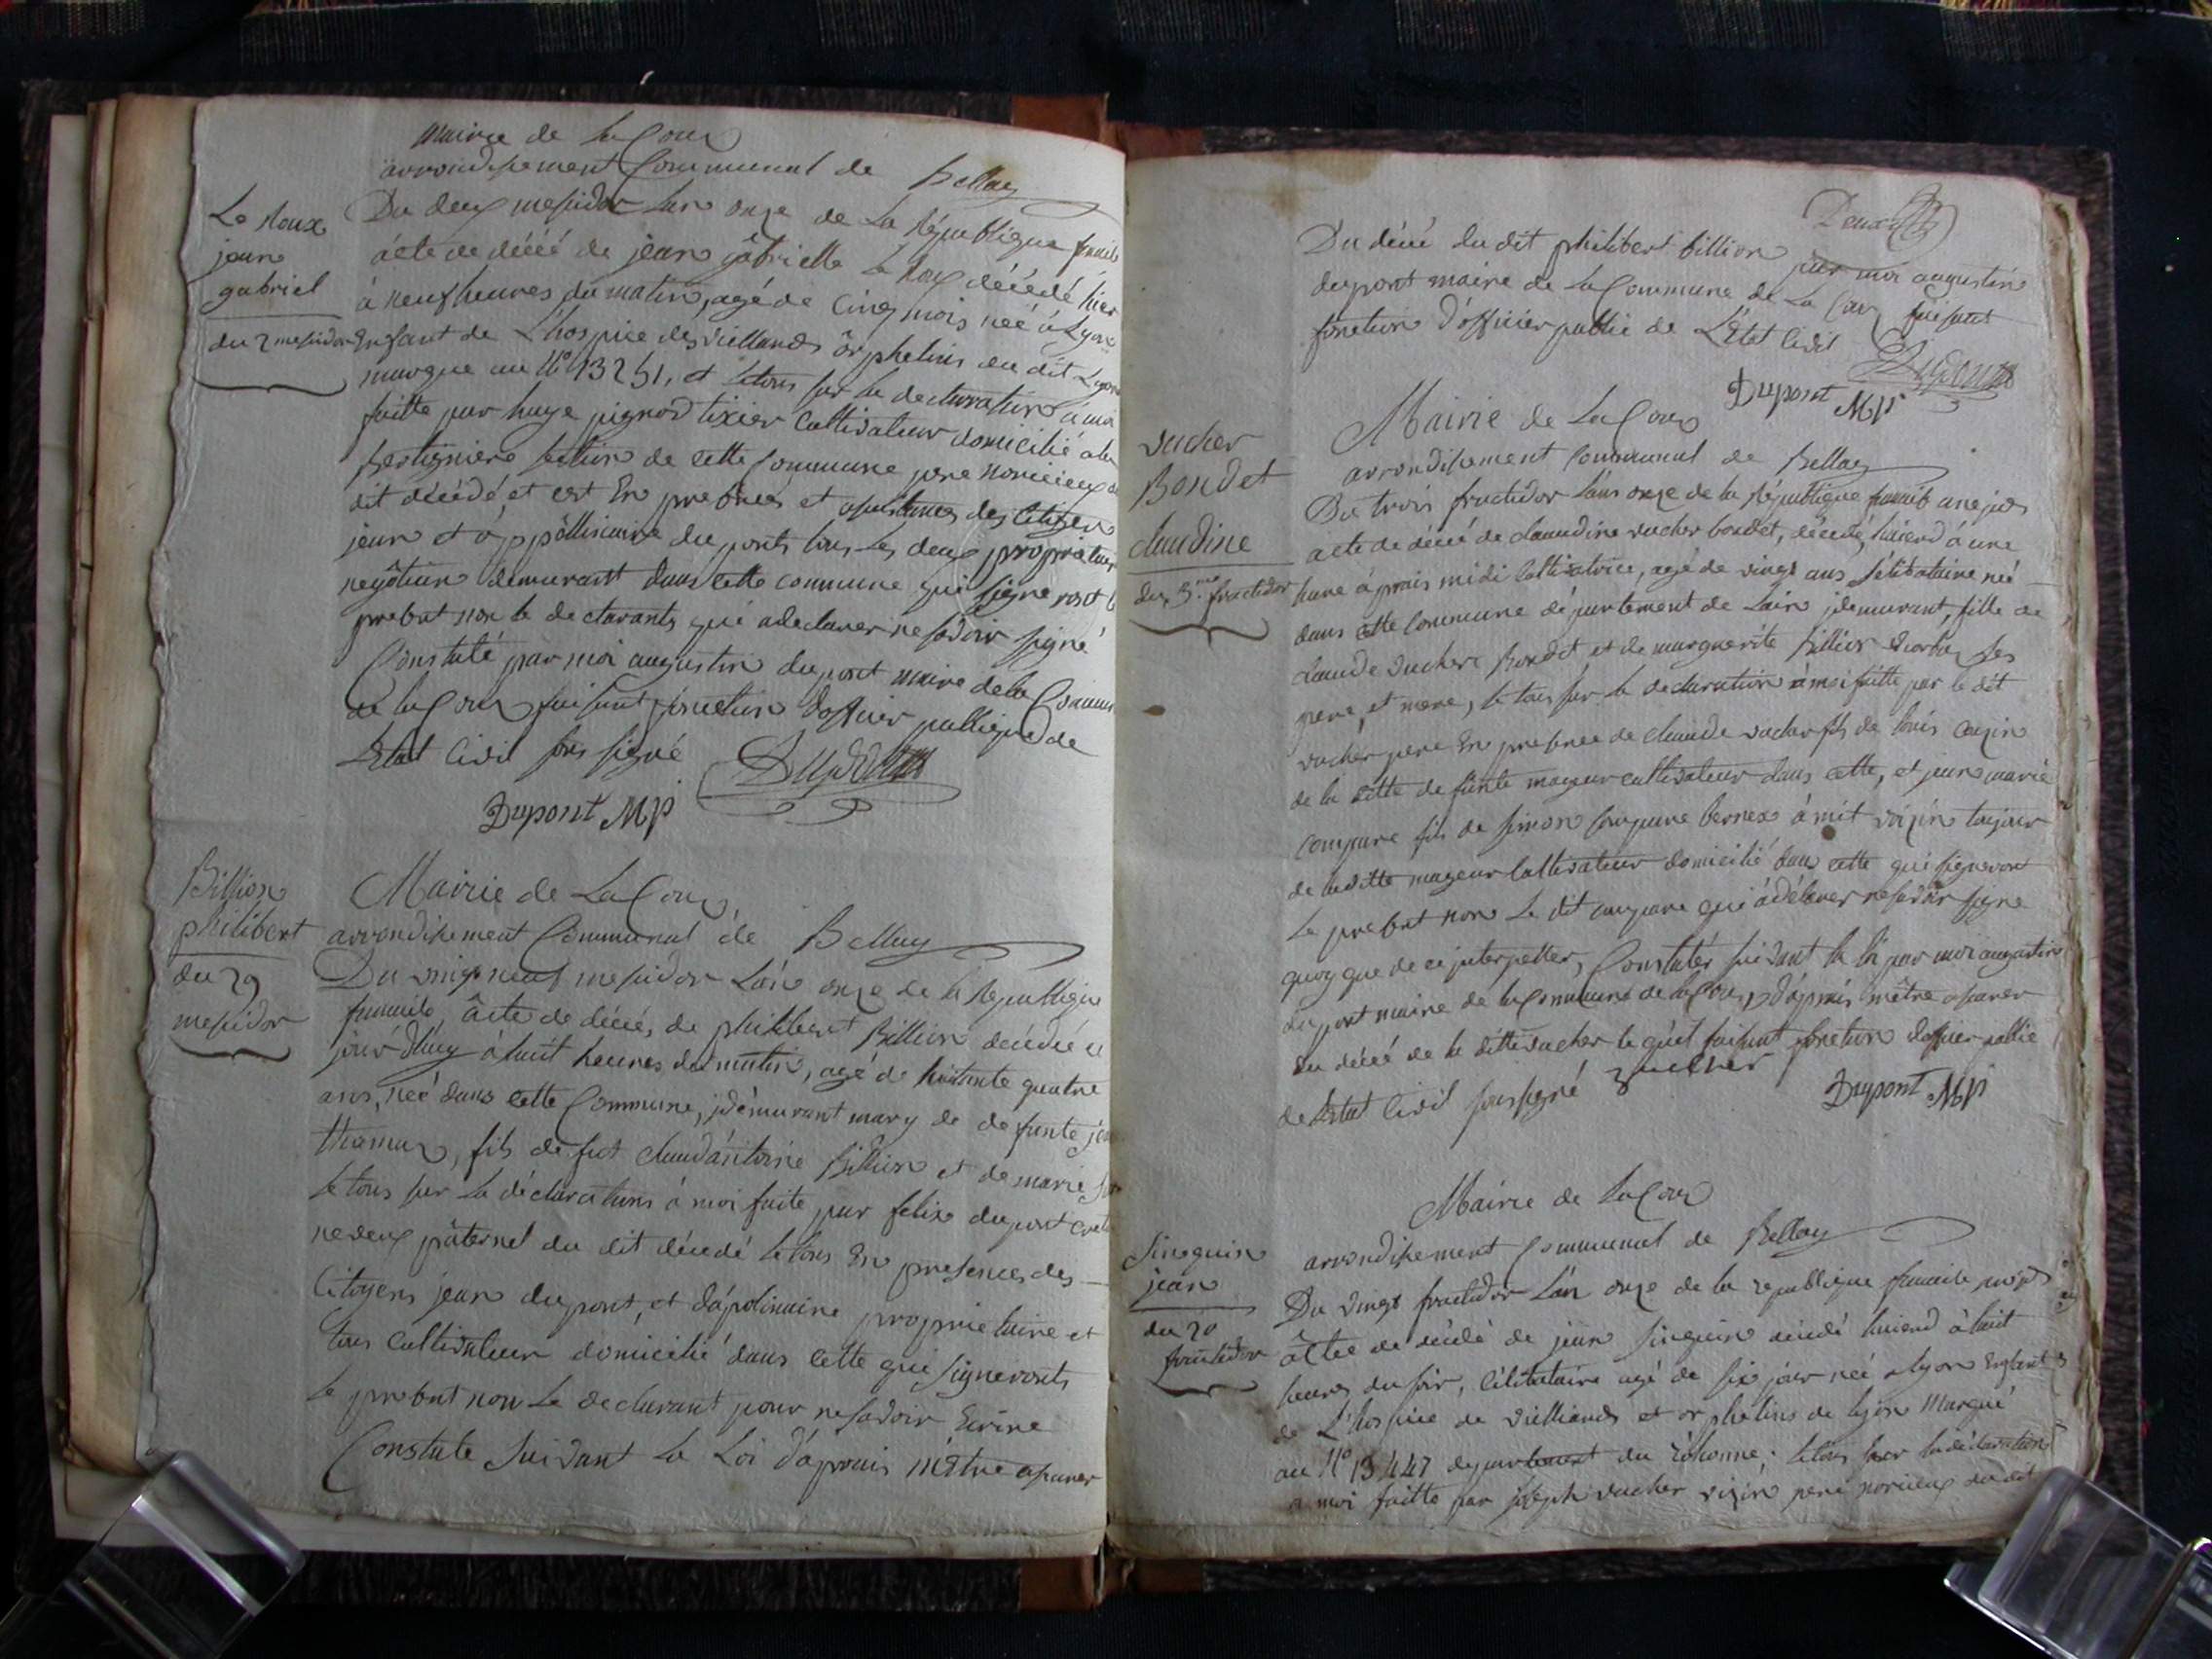 Mairie de La Coux
arrondissement Communal de Bellay
Le Roux
jean
gabriel
du 2 messidor
Du deux messidor lan onze de la République
acte de décéé de jean gâbrielle Le Roux décédé hier
à neuf heures du matin, agé de cinq mois neé à Lyon
Enfant de L'hospice des viellards ôrphelins du dit Lyon
marque au N° 13251, et letous sur la declaration à moi
faitte par huge pignod tixier cultivateur domicilié à la
section de cette Commune pere noricieux
dit décédé, et est En presences et des Citoyen
jean et dupont tous les deux propriétaire
negôtien demurant dans cette commune qui signeront
presént non le declarants qui a declarer ne savoir signé
Constaté par moi augustin dupont maire de la Commune
de la Coux faisant fonction dofficier publique de
Letat Civil sous signé
Dupont
Dupont MP
Billion
philibert
du 29
messidor
Mairie de La Coux
arrondissement Communal de Bellay
Du vingt neuf messidor L'an onze de la République
âcte de décéé, de philibert Billion décédé
jour d'huy à huit heures du matin, agé de huitante quatre
ans, neé dans cette Commune, demurant mary de defunte
thomas, fils de fut claudântoine Billion et de marie
letous sur la déclarations à moi faite par felix dupont
neveux pâternel du dit décédé letous En presences des
Citoyens jean dupont, et dâpolinaire proprietaire et
tous cultivateur domicilié dans cette qui signeronts
le presént non le declarant pour ne savoir Ecrire
Constate suivant la Loi d'aprais m'être assurer
Du décéé du dit philibert billion par moi augustin
dupont maire de la Commune de La Coux faisant
fonction d'officier public de L'Etat Civil
Dupont
Dupont MP
vucher
Bondet
claudine
du 3me fructidor
Mairie de La Coux
arrondissement Communal de Bellay
Du trois fructidor lans onze de la République
acte de décéé de claudine vucher bondet, décédé, hierd à une
hure âprais midi Cultivatrice, agé de vingt ans Sélibataire neé
dans cette Commune département de Lain demurant, fille de
claude vuchere Bondet et de marguerite Billion ses
pere, et mere, le tous sur la declaration à moi faitte par le dit
vucher pere En presence de claude vucher fils de louis cousin
de la ditte defunte mageur cultivateur dans cette, et jean marie
compare fils de simon compare bernex âmit voizin toujour
de laditte mageur Cultivateur domicilié dans cette qui signeront
le presént non le dit compare qui â délarer ne savoir signe
quoy que de ce interpetter, Constater suivant la loi par moi augustin
dupont maire de la Commune de la Coux, d'aprais mêtre assurer
du décéé de la ditte vucher le quel faisant fonction doffier public
de Lestat Civil soussigné vucher
Dupont MP
Sinquin
jean
du 20
fructidor
Mairie de La Coux
arrondissement Communal de Bellay
Du vingt fructidor L'an onze de la republique
âcte de décédé de jean Sinquin décédé hierd à huit
heures du soir, Célibataire agé de six jour neé a lyon Enfant
de L'hospice de vielliards et orphelins de lyon Marqué
au N° 13447 departement du Rôhonne; letous sur la déclaration
a moi faitte par joseph vucher vizin pere noricieux du dit